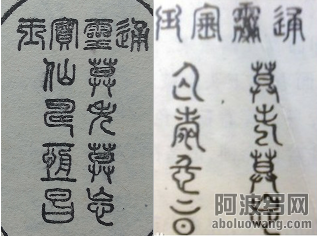 通靈寶玉
莫失莫忘
仙壽恆昌
通靈寶玉
莫失莫忘
仙壽恆昌
阿波罗网
www.aboluowang.com